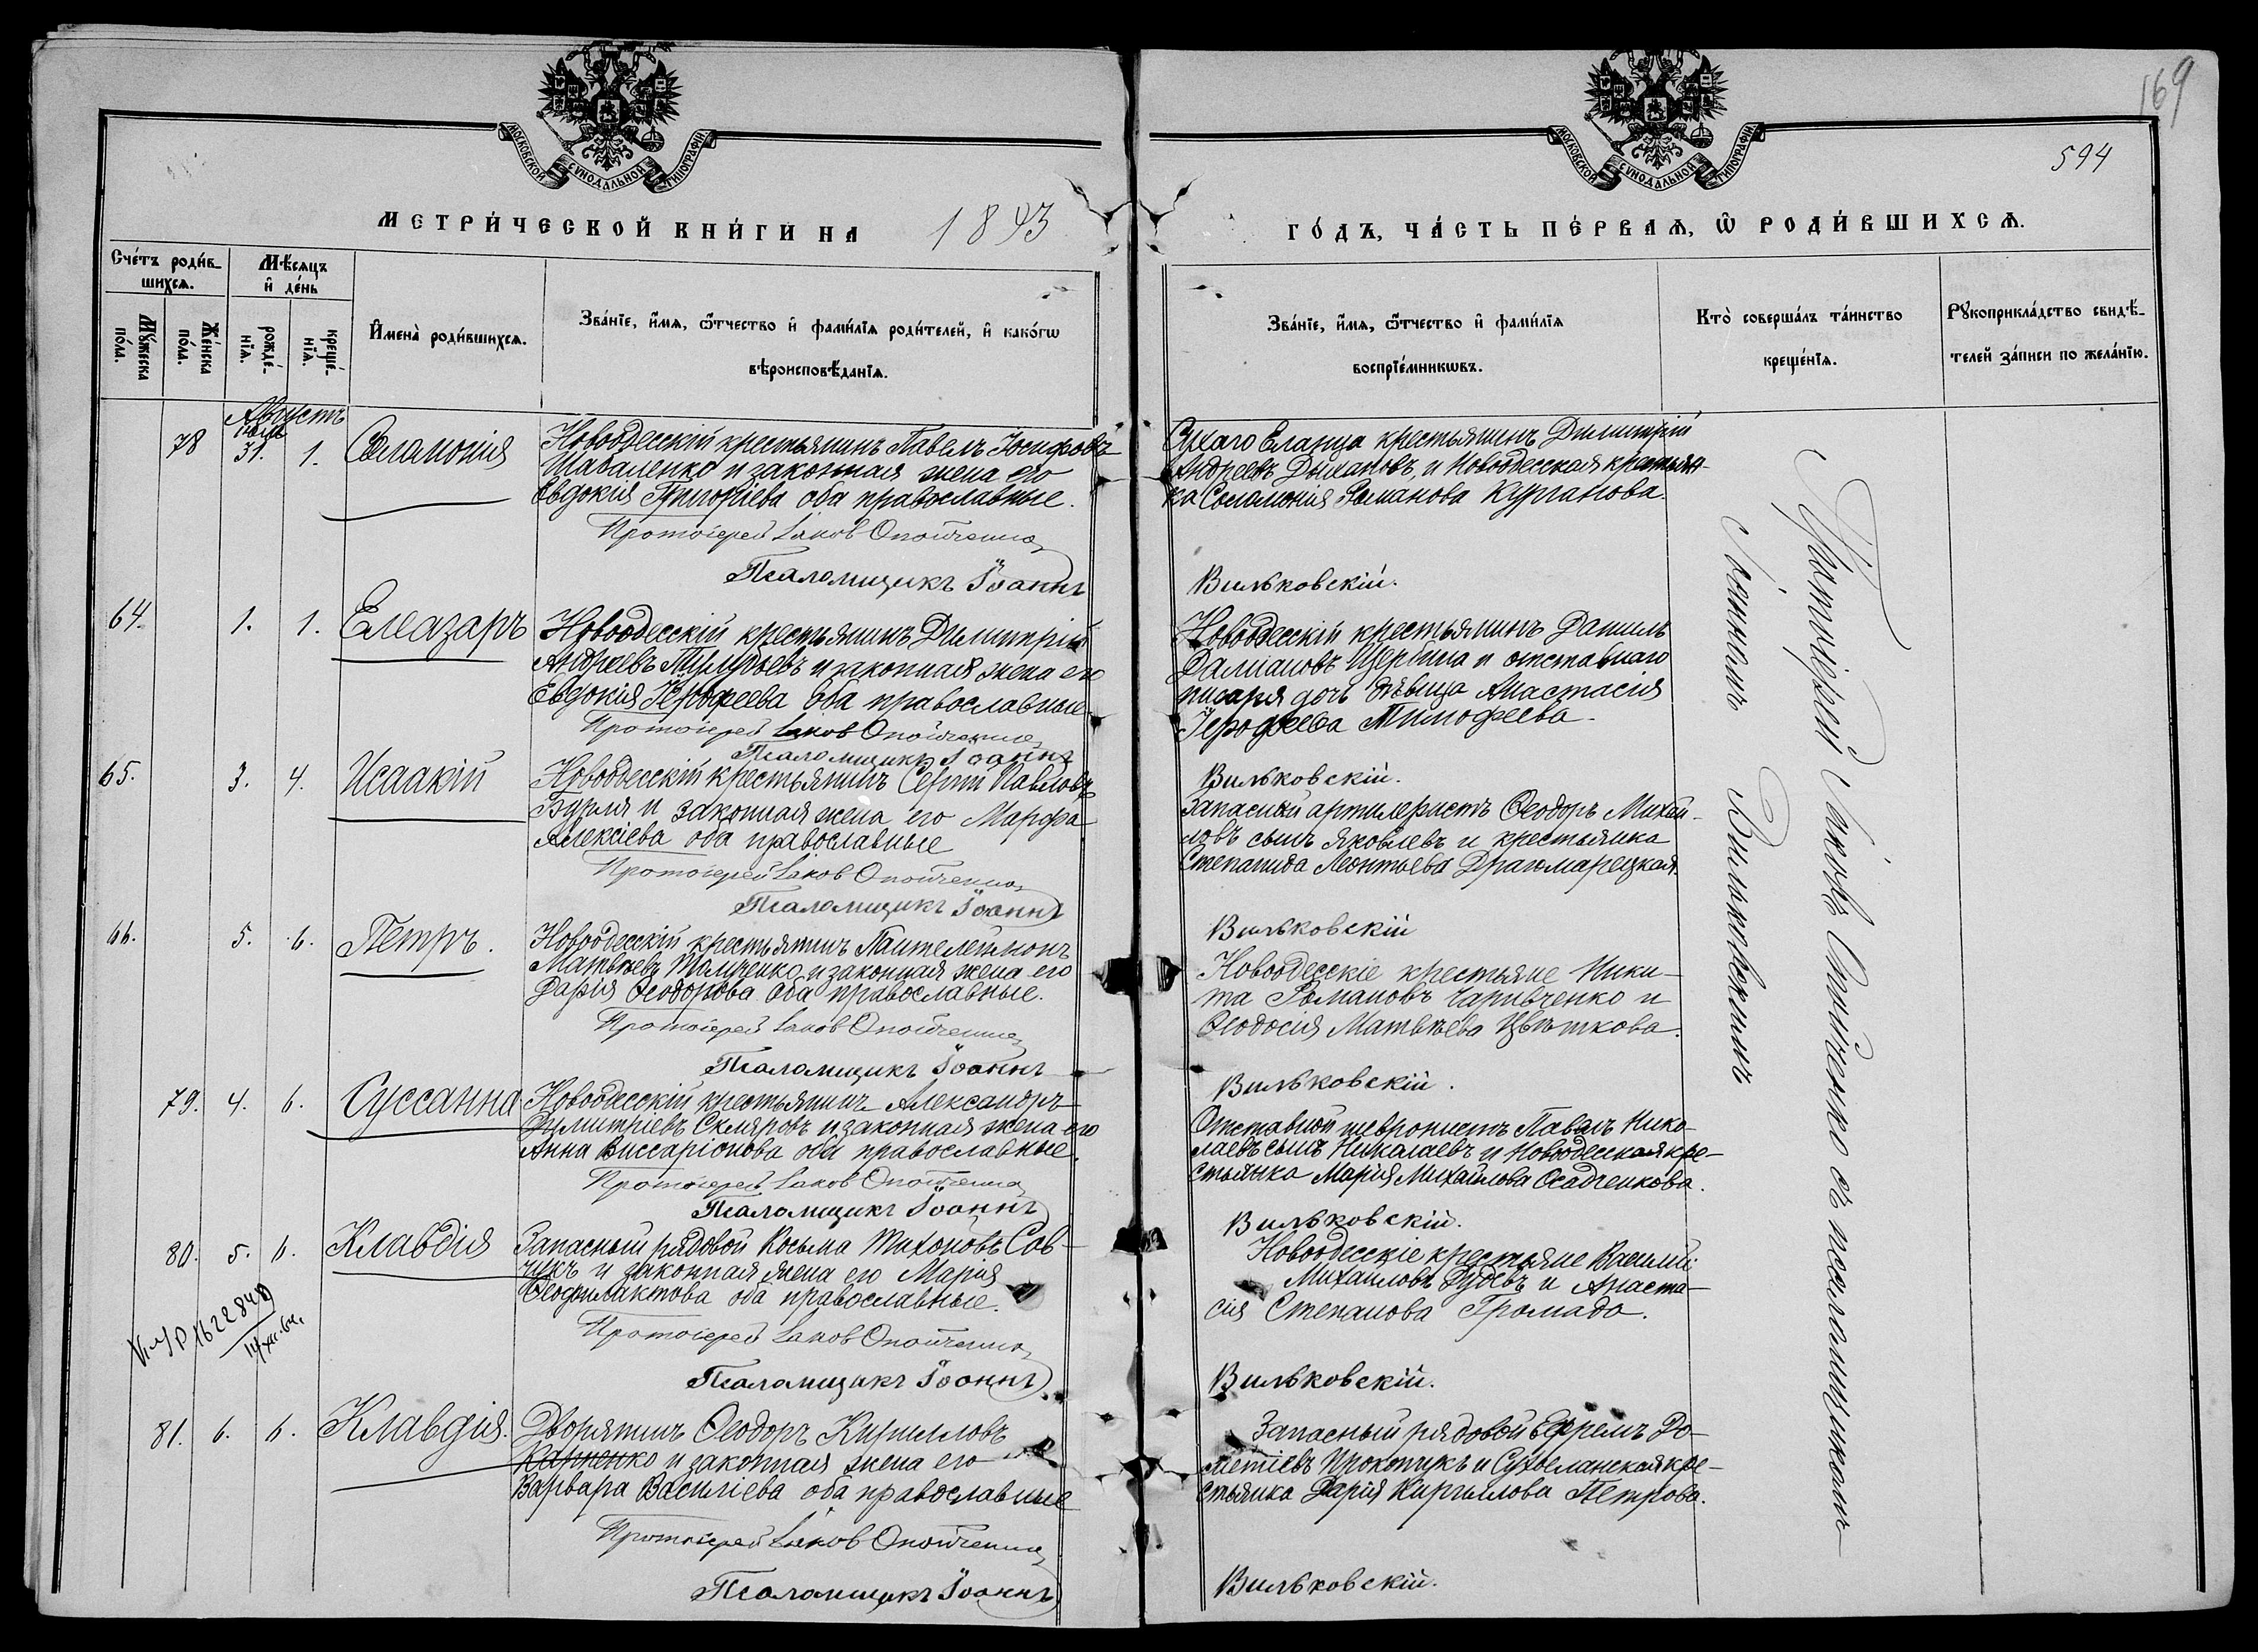 169
594
МОСКОВСКОЙ СѴНОДАЛЬНОЙ ТИПОГРАФІИ
МОСКОВСКОЙ СѴНОДАЛЬНОЙ ТИПОГРАФІИ
МЕТРИ́ЧЕСКОЙ КНИ́ГИ НА 1893
ГО́ДЪ, ЧА́СТЬ ПЕ́РВАѦ, Ѡ҆ РОДИ́ВШИХСѦ.
Счéтъ роди́вшихсѧ.
Мꙋ́жеска по́ла.
Же́нска по́ла.
Мѣ́сѧцъ и҆ де́нь
рожде́нїѧ.
креще́нїѧ.
И҆мена̀ роди́вшихсѧ.
Зва́нїе, и҆́мѧ, ѻ҆́тчество и҆ фами́лїѧ роди́телей, и҆ како́гѡ
вѣроисповѣ́данїѧ.
Зва́нїе, и҆́мѧ, ѻ҆́тчество и҆ фами́лїѧ
воспрїе́мникѡвъ.
Кто̀ соверша́лъ та́инство
креще́нїѧ.
Рꙋкоприкла́дство свидѣ́-
телей за́писи по жела́нїю.
Августъ
78 Іюль 31. 1. Соломонія
Новоодесскій крестьянинъ Павелъ Іосифовъ
Шаваленко и законная жена его
Евдокія Григоріева оба православные.
Протоіерей Іаков Опойченко
Псаломщикъ Іоаннъ
Сухаго Еланца крестьянинъ Димитрій
Андреевъ Дыхановъ, и Новоодесская крестьян-
ка Соломонія Романова Курганова.
Вильковскій.
64. 1. 1. Елеазаръ
Новоодесскій крестьянинъ Димитрій
Андреевъ и законная жена его
Евдокія Іероѳеева оба православные
Протоіерей Іаков Опойченко
Псаломщикъ Іоаннъ
Новоодесскій крестьянинъ Даниилъ
Даміановъ Щербина и отставнаго
писаря дочь дѣвица Анастасія
Іероѳеева Тимофеева.
Вильковскій.
65. 3. 4. Исаакій
Новоодесскій крестьянинъ Сергій Павловъ
Бурля и законная жена его Марфа
Алексіева оба православные
Протоіерей Іаков Опойченко
Псаломщикъ Іоаннъ
Запасный артилеристъ Ѳеодоръ Михай-
ловъ сынъ Яковлевъ и крестьянка
Степанида Леонтьева Драгомарецкая.
Вильковскій
66. 5. 6. Петръ.
Новоодесскій крестьянинъ Пантелеймонъ
Матвѣевъ Толмченко и законная жена его
Дарія Ѳеодорова оба православные.
Протоіерей Іаков Опойченко
Псаломщикъ Іоаннъ
Новоодесскіе крестьяне Ники-
та Романовъ Чаривченко и
Ѳеодосія Матвѣева Цвѣткова.
Вильковскій.
79. 4. 6. Суссанна
Новоодесскій крестьянинъ Александръ
Димитріевъ Скляровъ и законная жена его
Анна Виссаріонова оба православные.
Протоіерей Іаков Опойченко
Псаломщикъ Іоаннъ
Отставной шевронистъ Павелъ Нико-
лаевъ сынъ Николаевъ и Новоодесская кре-
стьянка Марія Михайлова Осадченкова.
Вильковскій.
80. 5. 6. Клавдія
Запасный рядовой Косьма Тихоновъ Сав-
чукъ и законная жена его Марія
Ѳеофилактова оба православные.
Протоіерей Іаков Опойченко
Псаломщикъ Іоаннъ
Новоодесскіе крестьяне Василій
Михаиловъ Гудевъ и Анаста-
сія Степанова Громадо.
Вильковскій.
81. 6. 6. Клавдія.
Дворянинъ Ѳеодоръ Кирилловъ
Карпенко и законная жена его
Варвара Василіева оба православные
Протоіерей Іаков Опойченко
Псаломщикъ Іоаннъ
Запасный рядовой Ефремъ До-
метіевъ Прокопчукъ и Сухоеланская кре-
стьянка Дарія Кириллова Петрова.
Вильковскій.
Протоіерей Іаковъ Опойченко съ псаломщикомъ
Іоанномъ Вильковскимъ